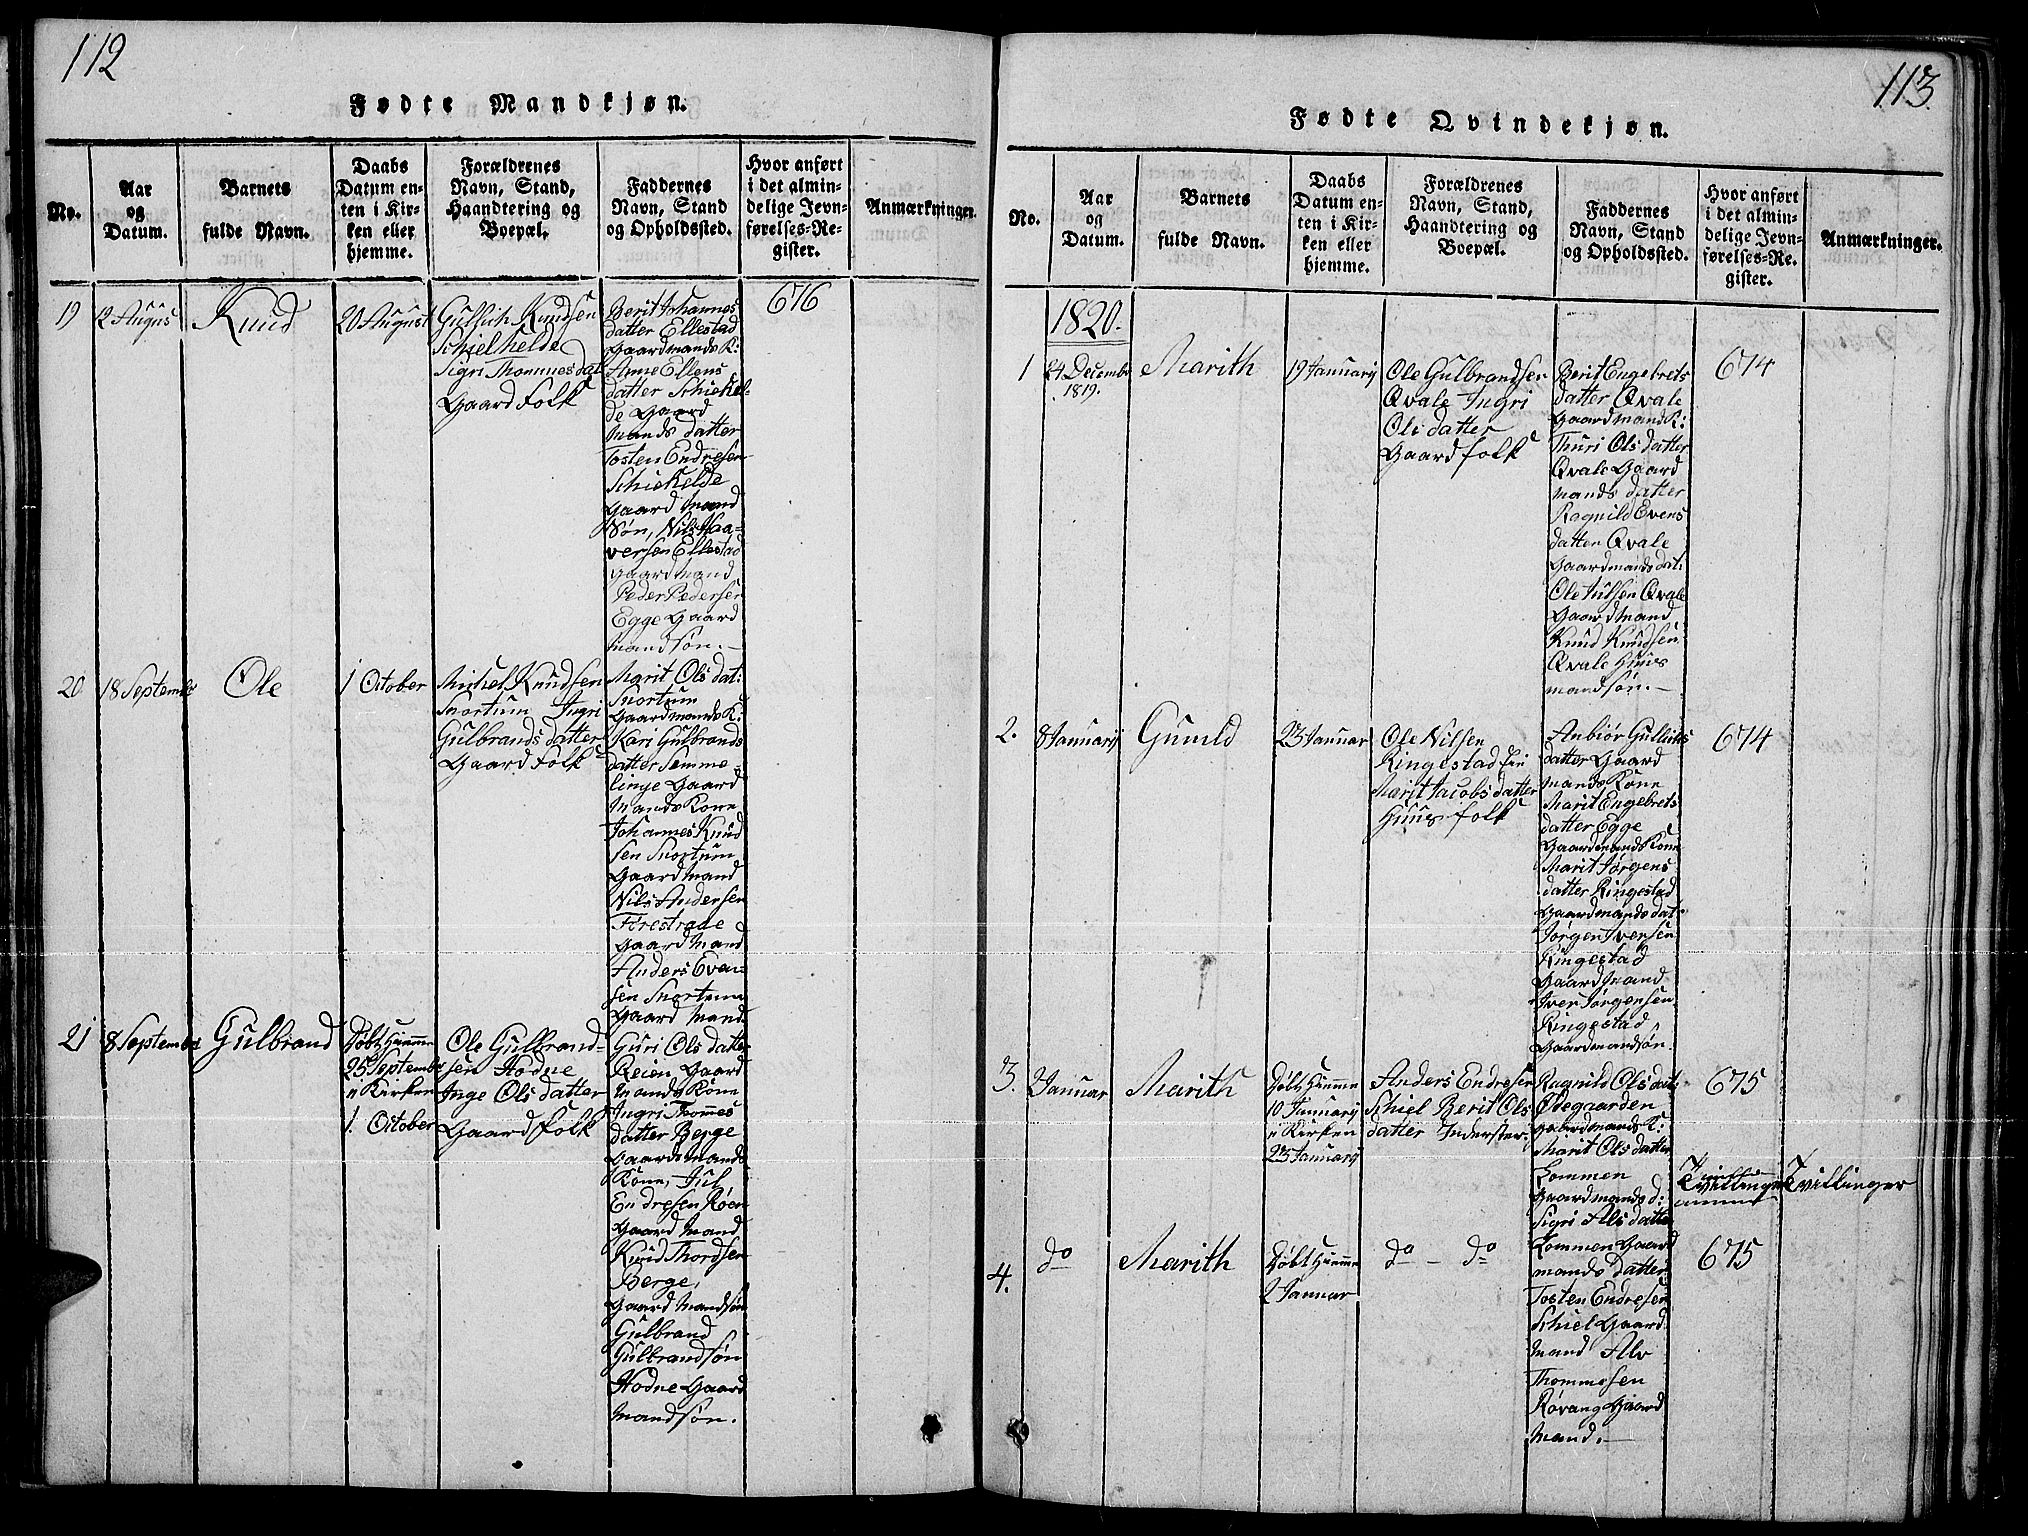 112
Fødte Mandkjøn.
No.
Aar
og
Datum.
Barnets
fulde Navn.
Daabs
Datum en-
ten i Kir-
ken eller
hjemme.
Forældrenes
Navn, Stand,
Haandtering og
Boepæl.
Faddernes
Navn, Stand
og Opholdssted.
Hvor anført
i det almin-
delige Jevn-
førelses-Re-
gister.
Anmærkninger.
19
12 Augus
Knud
20 August
Gullich Knudsen
Schielhelde
Sigri Thommesdat
Gaard folk
Berit Johannes
datter Ellestad
Gaardmands K:
Anne Ellens
datter Schiekel-
de Gaard
mands datter
Tosten Endresen
Schiekelde
Gaard mand
Søn, Nils Haa-
versen Ellestad
Gaard mand
Peder Pedersen
Egge Gaard
mandsøn.
676
20
18 Septembr
Ole
1 October
Michel Knudsen
Snortum Ingri
Gulbrands datter
Gaard folk
Marit Ols dat:
Snortum
Gaardmands K:
Kari Gulbrands
datter Semme-
linge Gaard
mands Kone
Johannes Knud
sen Snortum
Gaard mand
Nils Andersen
Gaard mand
Anders Even-
sen Snortum
Gaard mand
21
8 September
Gulbrand
Døbt Hiemme
25 Septembr
i Kirken
1. October
Ole Gulbrand-
sen Hodne
Inge Ols datter
Gaard folk
Guri Ols datter
Reien Gaard
mands Kone
Ingri Thommes
datter Berge
Gaard mands
Kone, Jul
Endresen Røen
Gaard mand
Knud Thordsen
Berge,
Gaard mandsøn
Gulbrand
Gulbrandsøn
Hodne Gaard
mandsøn.
113
Fødte Qvindekjøn.
No.
Aar
og
Datum.
Barnets
fulde Navn.
Daabs
Datum en-
ten i Kir-
ken eller
hjemme.
Forældrenes
Navn, Stand,
Haandtering og
Boepæl.
Faddernes
Navn, Stand
og Opholdssted.
Hvor anført
i det almin-
delige Jevn-
førelses-Re-
gister.
Anmærkninger.
1820.
1
24 Decembr
1819.
Marith
19 Januarij
Ole Gulbrandsen
Qvale Ingri
Ols datter
Gaard folk
Berit Engebrets
datter Qvale
Gaardmand K:
Thuri Ols datter
Qvale Gaard
mands datter
Ragnild Evens
datter Qvale
Gaardmands dat:
Ole Julsen Qvale
Gaard mand
Knud Knudsen
Qvale Huus
mandsøn.
674
2.
8 Januarij
Gunild
23 Januar
Ole Nilsen
Ringestad
Marit Jacobs datter
Huus folk
Anbiør Gulliks
datter Gaard
mands Kone
Marit Engebrets
datter Egge
Gaardmands Kone
Marit Jørgens
datter Ringestad
Gaardmands dat
Jørgen Iversen
Ringestad
Gaard mand
Iver Jørgensen
Ringestad
Gaardmandsøn.
674
3.
2 Januar
Marith
Døbt Hiemme
10 Januarij
i Kirken
23 Januarij
Anders Endresen
Schiel Berit Ols
datter Inderster.
Ragnild Ols dat:
Ødegaarden
Gaardmands K:
Marit Ols datter
Lommen
Gaardmands d:
Sigri Als datter
Lommen Gaard
mands datter
Tosten Endresen
Schiel Gaard
mand Alv
Thommesen
Røvang Gaard
mand.
675
Tvillinger
4.
do
Marith
Døbt Hiemme
2 Januar
do - do
675